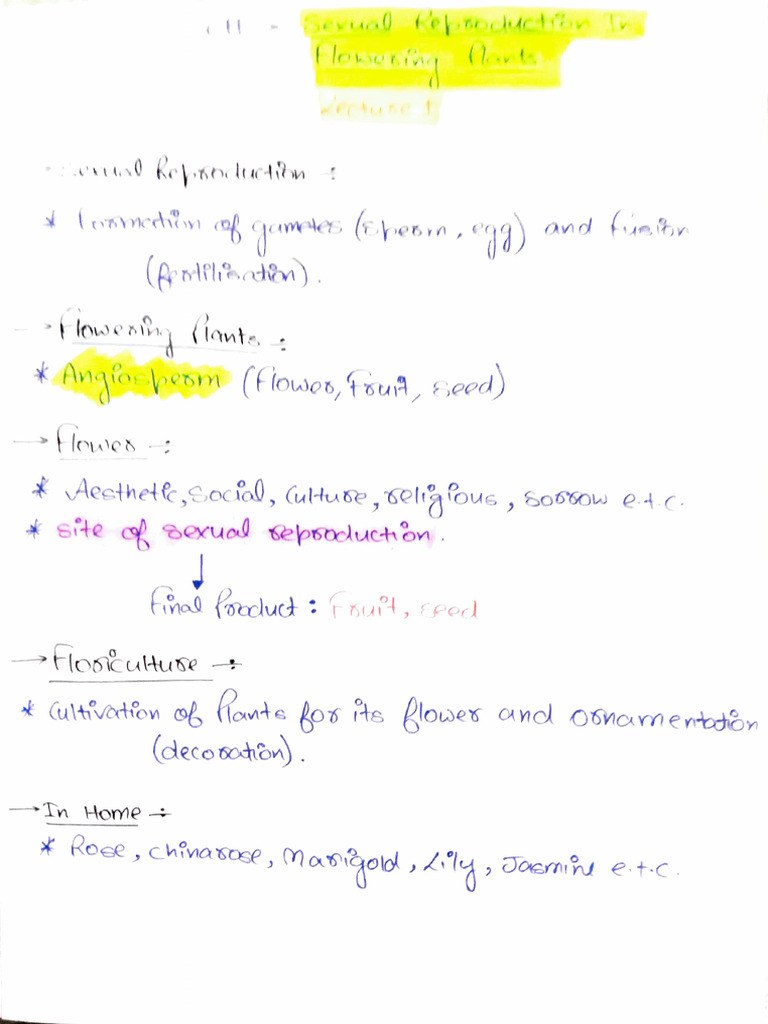 Sexual Reproduction In
Flowering Plants
Lecture 1
Reproduction :
* Formation of gametes (sperm, egg) and fusion
(fertilisation).
→ Flowering Plants :
* Angiosperm (Flower, Fruit, seed)
→ Flower :
* Aesthetic, social, culture, religious, sorrow e.t.c.
* site of sexual reproduction.
↓
Final Product : Fruit, seed
→ Floriculture :
* Cultivation of Plants for its flower and ornamentation
(decoration).
→ In Home :
* Rose, chinarose, Marigold, Lily, Jasmine e.t.c.